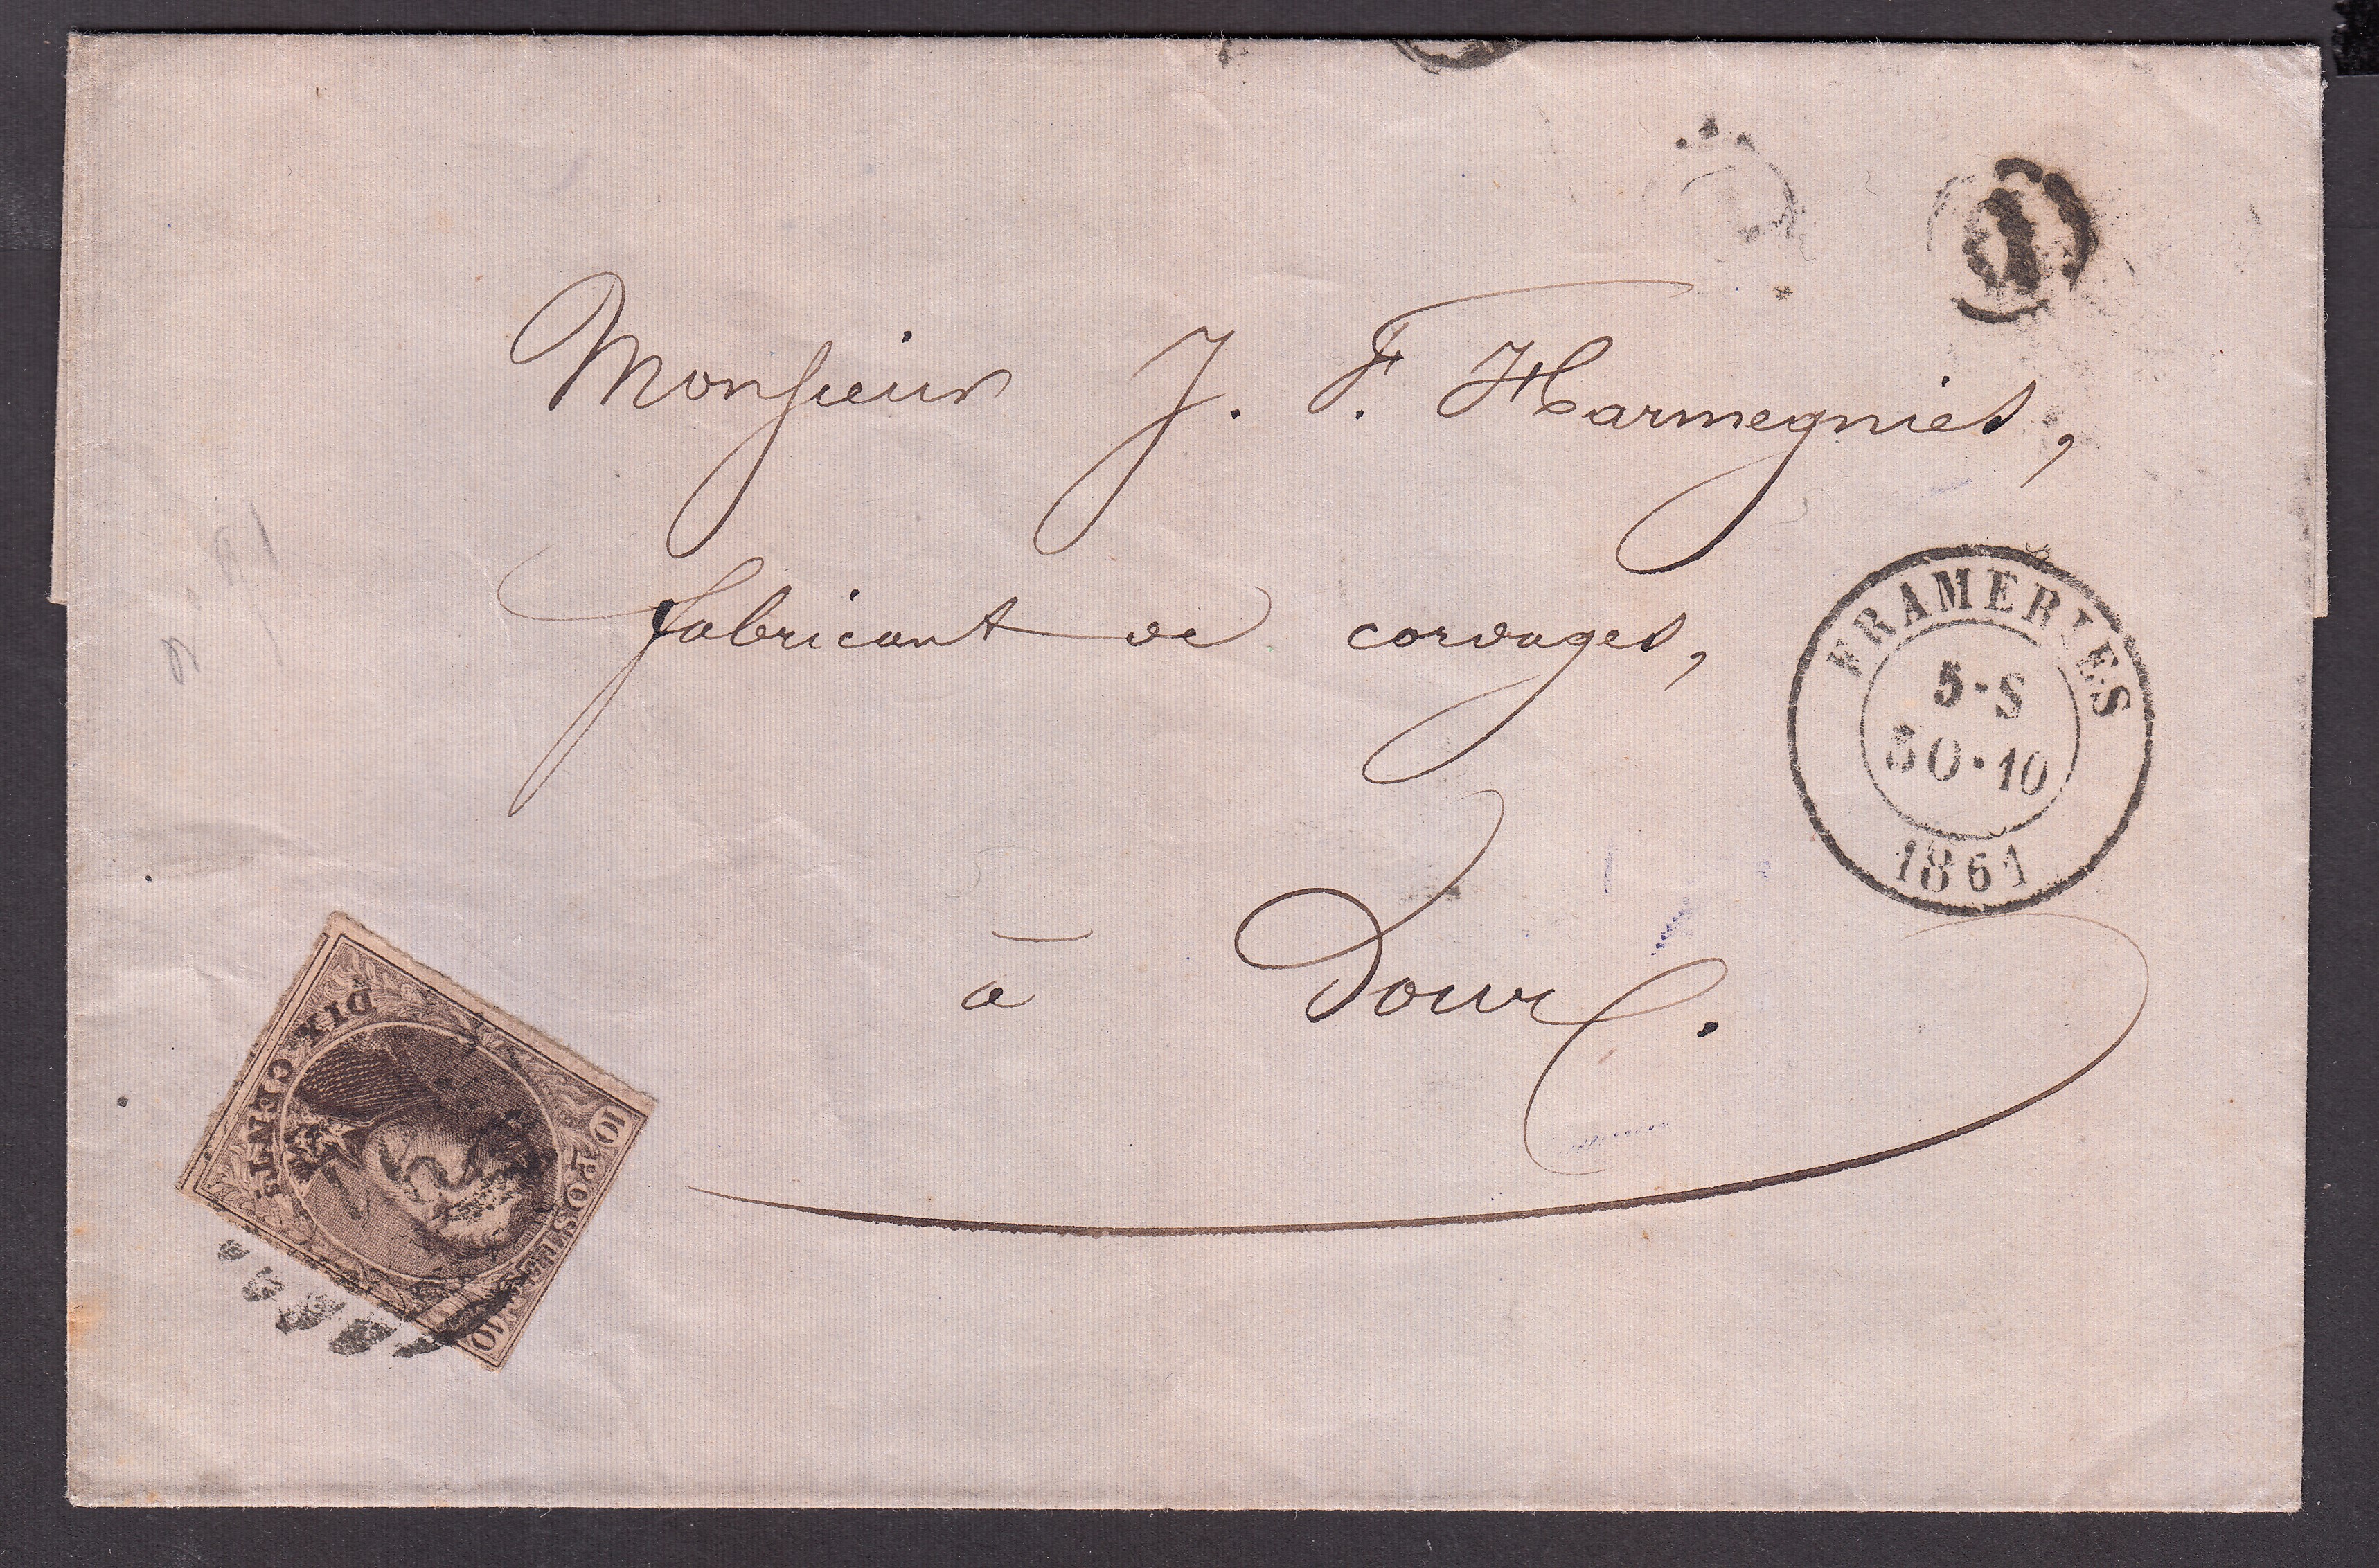 1
Monsieur J. F. Harmegnies,
fabricant de cordages,
FRAMERIES
5·S
30·10
1861
à Dour.
DIX CENTS.
10 POSTES 10